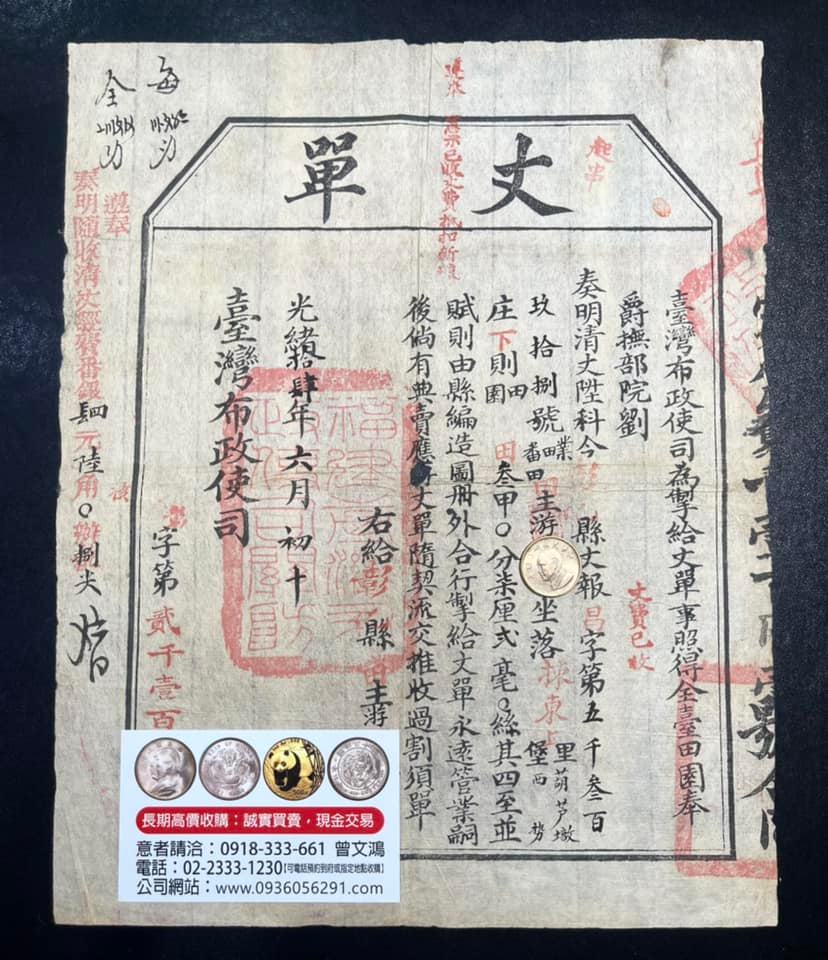 丈單
臺灣布政使司為掣給丈單事照得全臺田園奉
爵撫部院劉
奏明清丈陞科今
縣丈報昌字第五千叁百
玖拾捌號
業田
番田
主游
坐落揀東上
里葫芦墩
堡西勢
庄下則
田
園
田叁甲〇分柒厘弍毫〇絲其四至並
賦則由縣編造圖冊外合行掣給丈單永遠管業嗣
後倘有典賣應
丈單隨契流交推收過割須單
右給彰
縣
主游
光緒拾肆年六月初十
臺灣布政使司
字第貳千壹百
丈費已收
遵奉
奏明隨收清丈經費番銀肆元陸角〇
捌尖
每
全
長期高價收購：誠實買賣，現金交易
意者請洽：0918-333-661 曾文鴻
電話：02-2333-1230【可電話預約到府或指定地點收購】
公司網站：www.0936056291.com